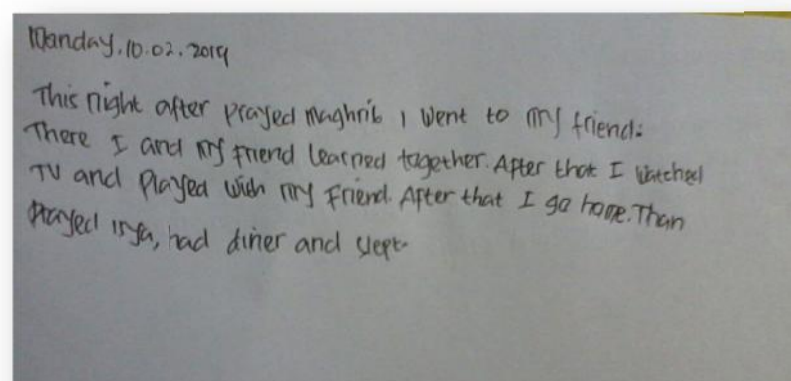 Monday, 10.02.2014
This night after prayed maghrib I went to my friend.
There I and my friend learned together. After that I watched
TV and played with my friend. After that I go home. Than
prayed isya, had diner and slept.